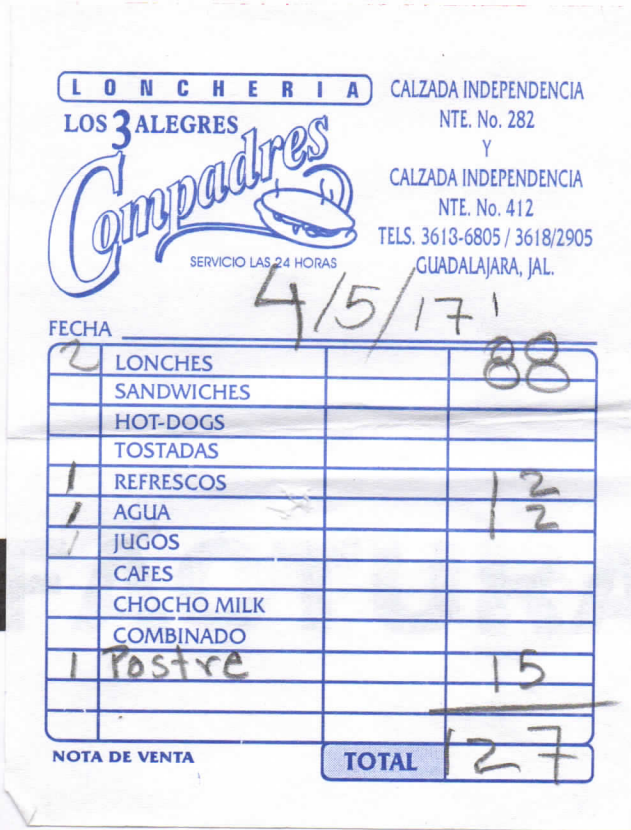 LONCHERIA
LOS 3 ALEGRES
Compadres
SERVICIO LAS 24 HORAS
CALZADA INDEPENDENCIA
NTE. No. 282
Y
CALZADA INDEPENDENCIA
NTE. No. 412
TELS. 3613-6805 / 3618/2905
GUADALAJARA, JAL.
FECHA 4/5/17
2 LONCHES 88
SANDWICHES
HOT-DOGS
TOSTADAS
1 REFRESCOS 12
1 AGUA 12
1 JUGOS
CAFES
CHOCHO MILK
COMBINADO
1 Postre 15
NOTA DE VENTA TOTAL 127